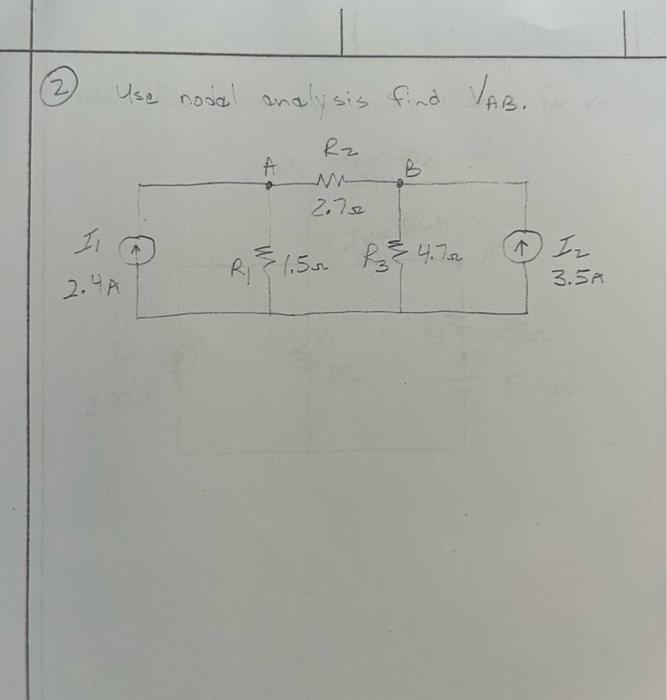 2 Use nodal analysis find VAB.
R2
A B
2.7Ω
I1 R1 1.5Ω R3 4.7Ω I2
2.4A 3.5A